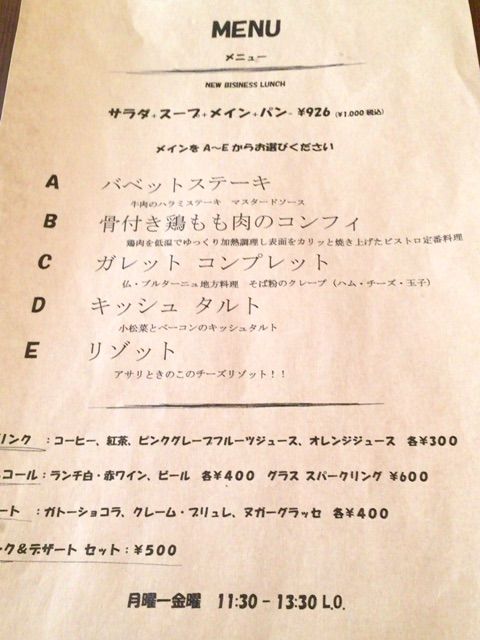 MENU
メニュー
NEW BISINESS LUNCH
サラダ+スープ+メイン+パン- ¥926 (¥1.000 税込)
メインを A～E からお選びください
A バベットステーキ
牛肉のハラミステーキ マスタードソース
B 骨付き鶏もも肉のコンフィ
鶏肉を低温でゆっくり加熱調理し表面をカリッと焼き上げたビストロ定番料理
C ガレット コンプレット
仏・ブルターニュ地方料理 そば粉のクレープ（ハム・チーズ・玉子）
D キッシュ タルト
小松菜とベーコンのキッシュタルト
E リゾット
アサリときのこのチーズリゾット！！
リンク ：コーヒー、紅茶、ピンクグレープフルーツジュース、オレンジジュース 各¥300
コール：ランチ白・赤ワイン、ビール 各¥400 グラス スパークリング ¥600
ート ：ガトーショコラ、クレーム・ブリュレ、ヌガーグラッセ 各¥400
ンク＆デザート セット：¥500
月曜ー金曜 11:30 - 13:30 L.O.